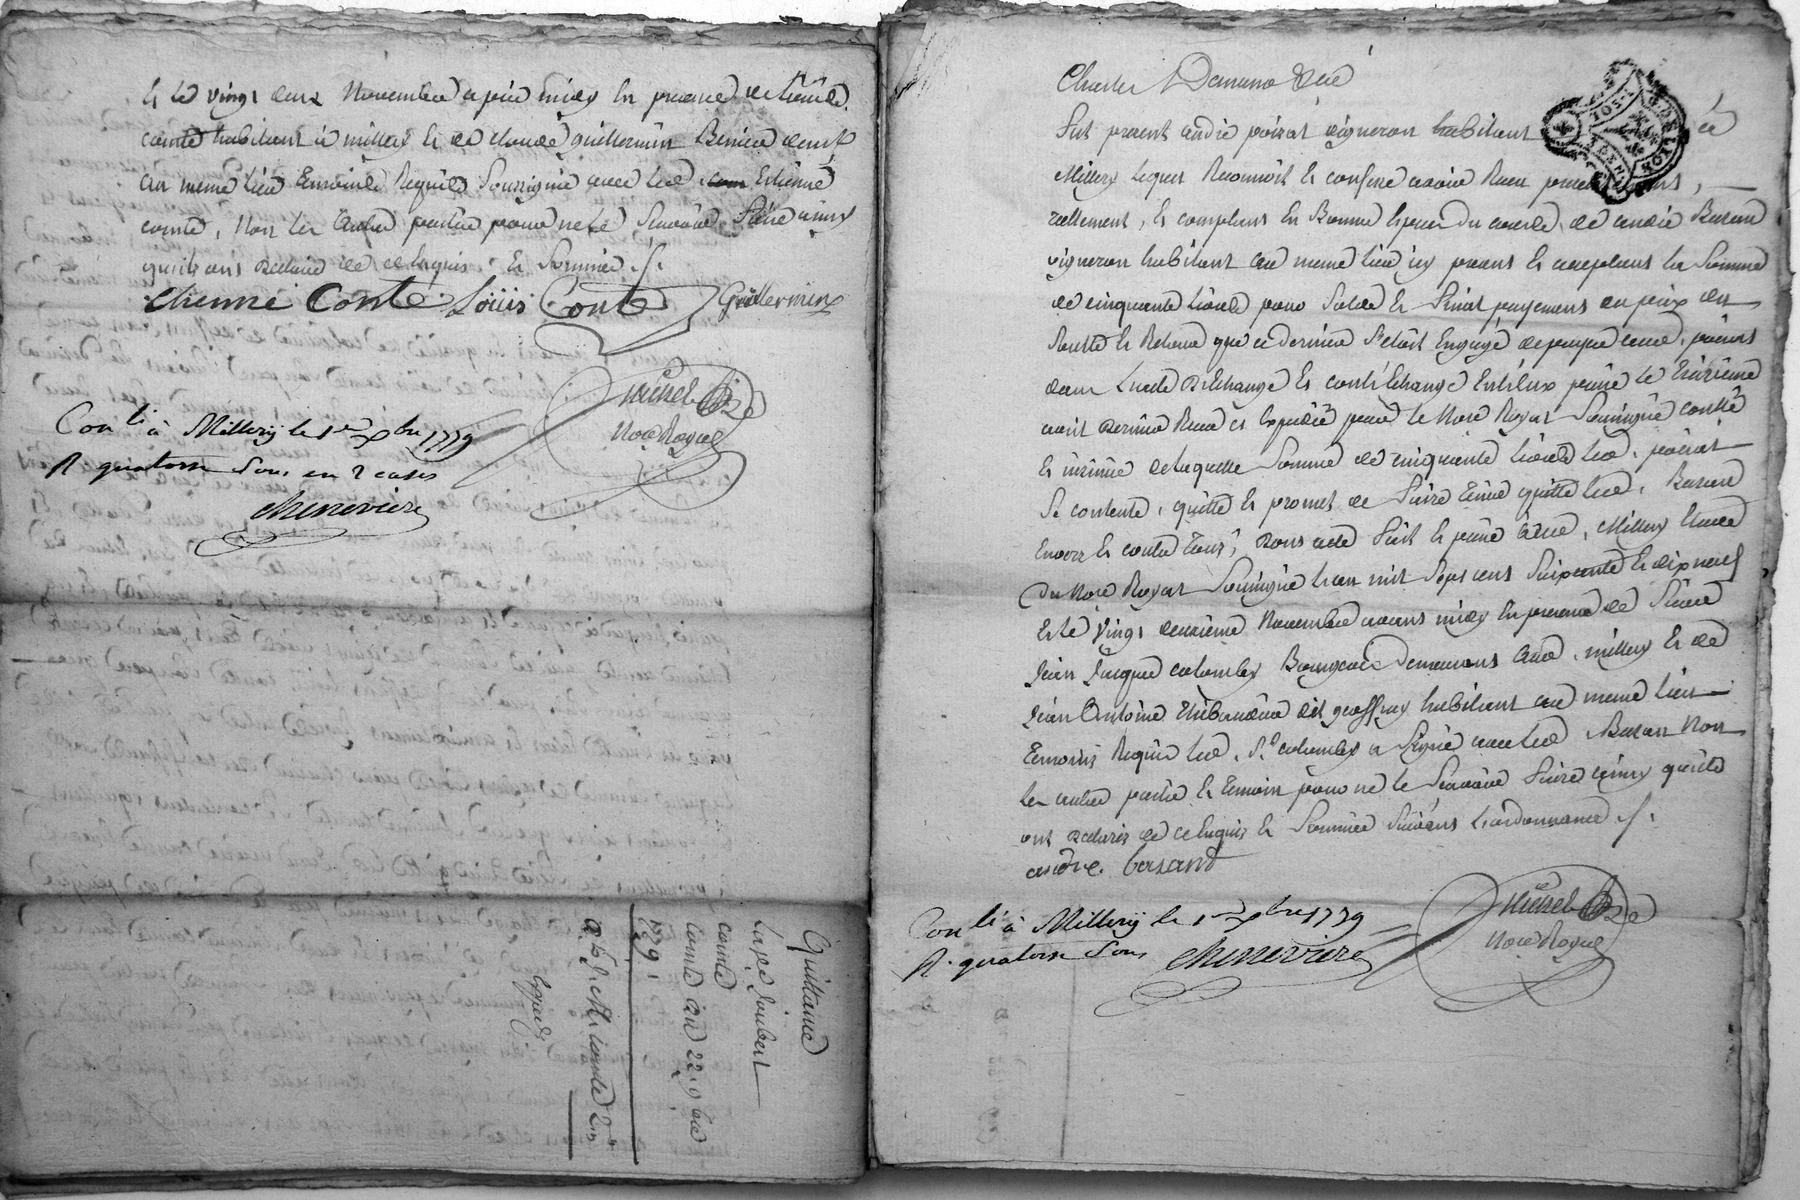 Et le vingt deux Novembre apres midy en presence de
comte habitant à millery et de claude guillermin
au meme lieu Temoins Requis Soussignés avec led. Etienne
comte, Non les autres parties pour ne le Scavoir faire ainsy
quils ont declaré de ce Enquis et Sommés ./.
etienne Conte Loüis Conte Guillermin
Michel
No.re Royal
Con.lé à Millerÿ le 1er xbre 1779
R quatorze Sous en 2 cases
Cheneviere
Quittance
Joubert
comte
comte du 22 9bre
1779.
Expedié
Charles
Fut present andré poirat vigneron habitant
Millery lequel Reconnoit et confesse avoir Reçu presentement,
reellement, et comptant En Bonne Espece du cours, de andré Basan
vigneron habitant au meme lieu icy present et acceptant la Somme
de cinquante Livres pour Solde et final payement du prix des
que ce dernier S'etoit Engagé de payer aud. poirat
dans Lacte D'Echange et contréchange Entr'eux passé le treizieme
avril dernier Reçu et Expédié par le No.re Royal Soussigné conllé
et insinué de laquelle Somme de cinquante Livres led. poirat
Se contente, quitte et promet de faire tenir quitte led. Basan
Envers et contre tous, dont acte fait et passé aud. Millery Etude
du No.re Royal Soussigné Lan mil Sept cent Soixante et dix neuf
Et le vingt deuxieme Novembre avant midy En presence de Sieur
Jean Jacques colomby Bourgeois demeurant aud. millery et de
Jean Antoine thibaudier dit geoffray habitant au meme lieu
Temoins Requis led. Sr. colomby a Signé avec led. Basan Non
les autres partie et temoin pour ne le Scavoir faire ainsy quils
ont declaré de ce Enquis et Sommés Suivant Lordonnance ./.
andre basand
Michel
No.re Royal
Con.lé à Millerÿ le 1er xbre 1779
R. quatorze Sous Cheneviere